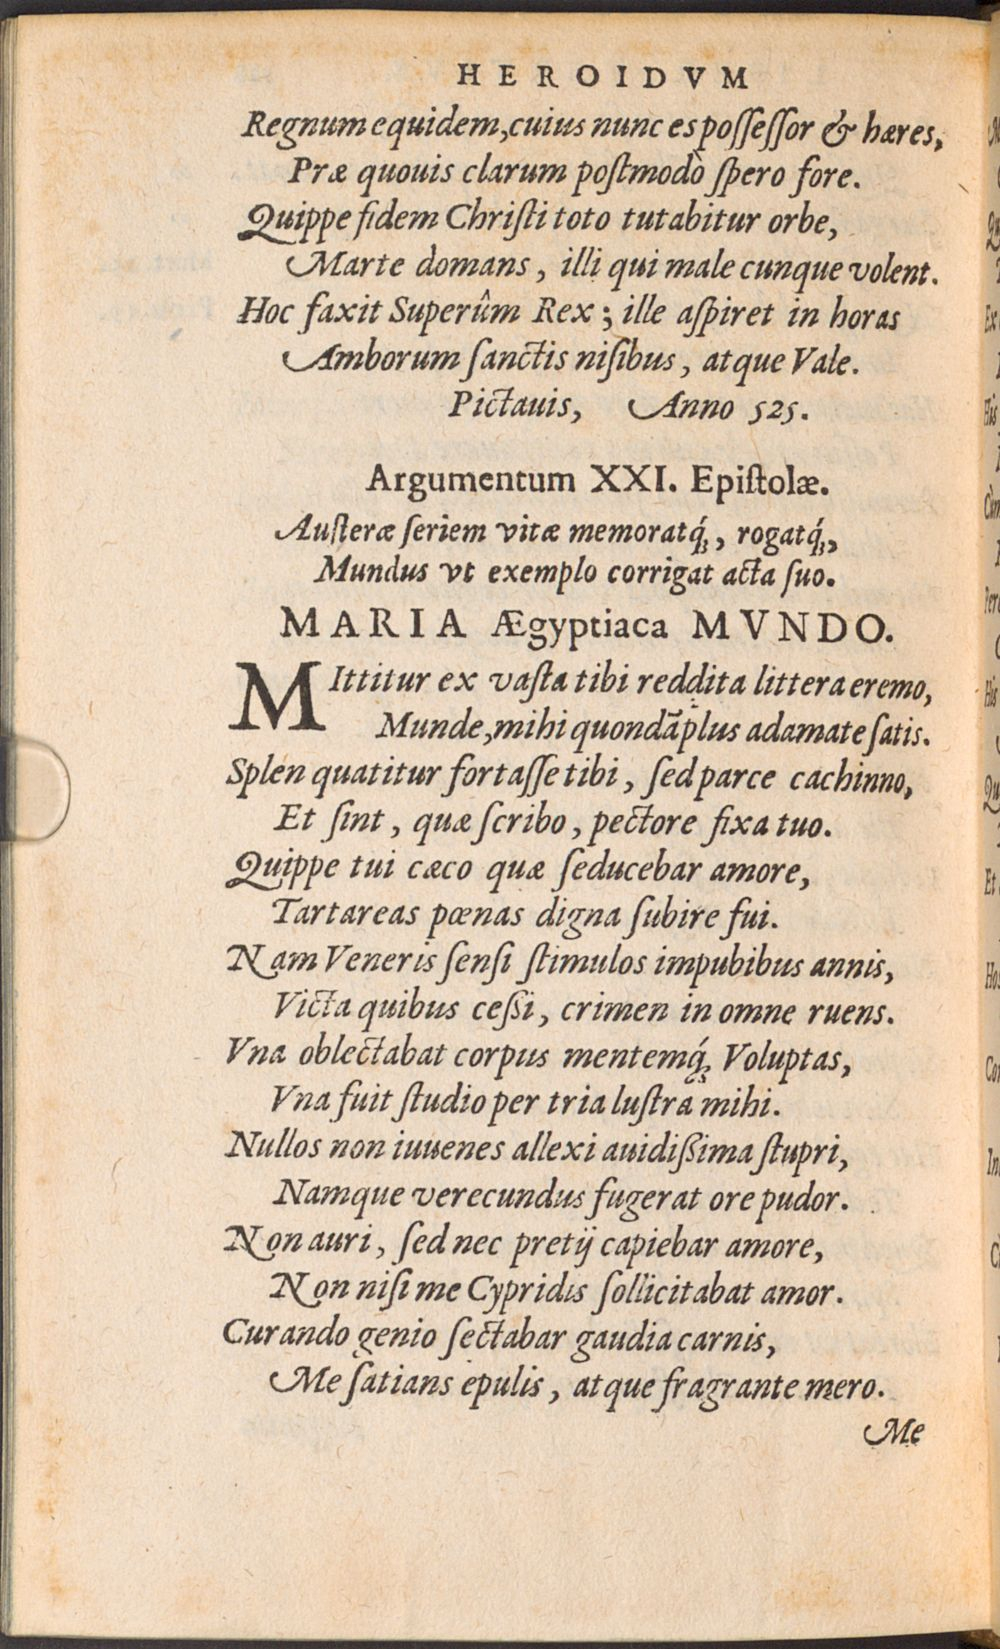 HEROIDVM
Regnum equidem, cuius nunc es poſſeſſor & hæres,
Præ quouis clarum poſtmodò ſpero fore.
Quippe fidem Chriſti toto tutabitur orbe,
Marte domans, illi qui male cunque volent.
Hoc faxit Superûm Rex; ille aſpiret in horas
Amborum ſanctis niſibus, atque Vale.
Pictauis, Anno 525.
Argumentum XXI. Epiſtolæ.
Auſteræ ſeriem vitæ memoratq́;, rogatq́;,
Mundus vt exemplo corrigat acta ſuo.
MARIA Ægyptiaca MVNDO.
MIttitur ex vaſta tibi reddita littera eremo,
Munde, mihi quondã plus adamate ſatis.
Splen quatitur fortaſſe tibi, ſed parce cachinno,
Et ſint, quæ ſcribo, pectore fixa tuo.
Quippe tui cæco quæ ſeducebar amore,
Tartareas pœnas digna ſubire fui.
Nam Veneris ſenſi ſtimulos impubibus annis,
Victa quibus ceſſi, crimen in omne ruens.
Vna oblectabat corpus mentemq́; Voluptas,
Vna fuit ſtudio per tria luſtra mihi.
Nullos non iuuenes allexi auidiſſima ſtupri,
Namque verecundus fugerat ore pudor.
Non auri, ſed nec pretij capiebar amore,
Non niſi me Cypridis ſollicitabat amor.
Curando genio ſectabar gaudia carnis,
Me ſatians epulis, atque fragrante mero.
Me